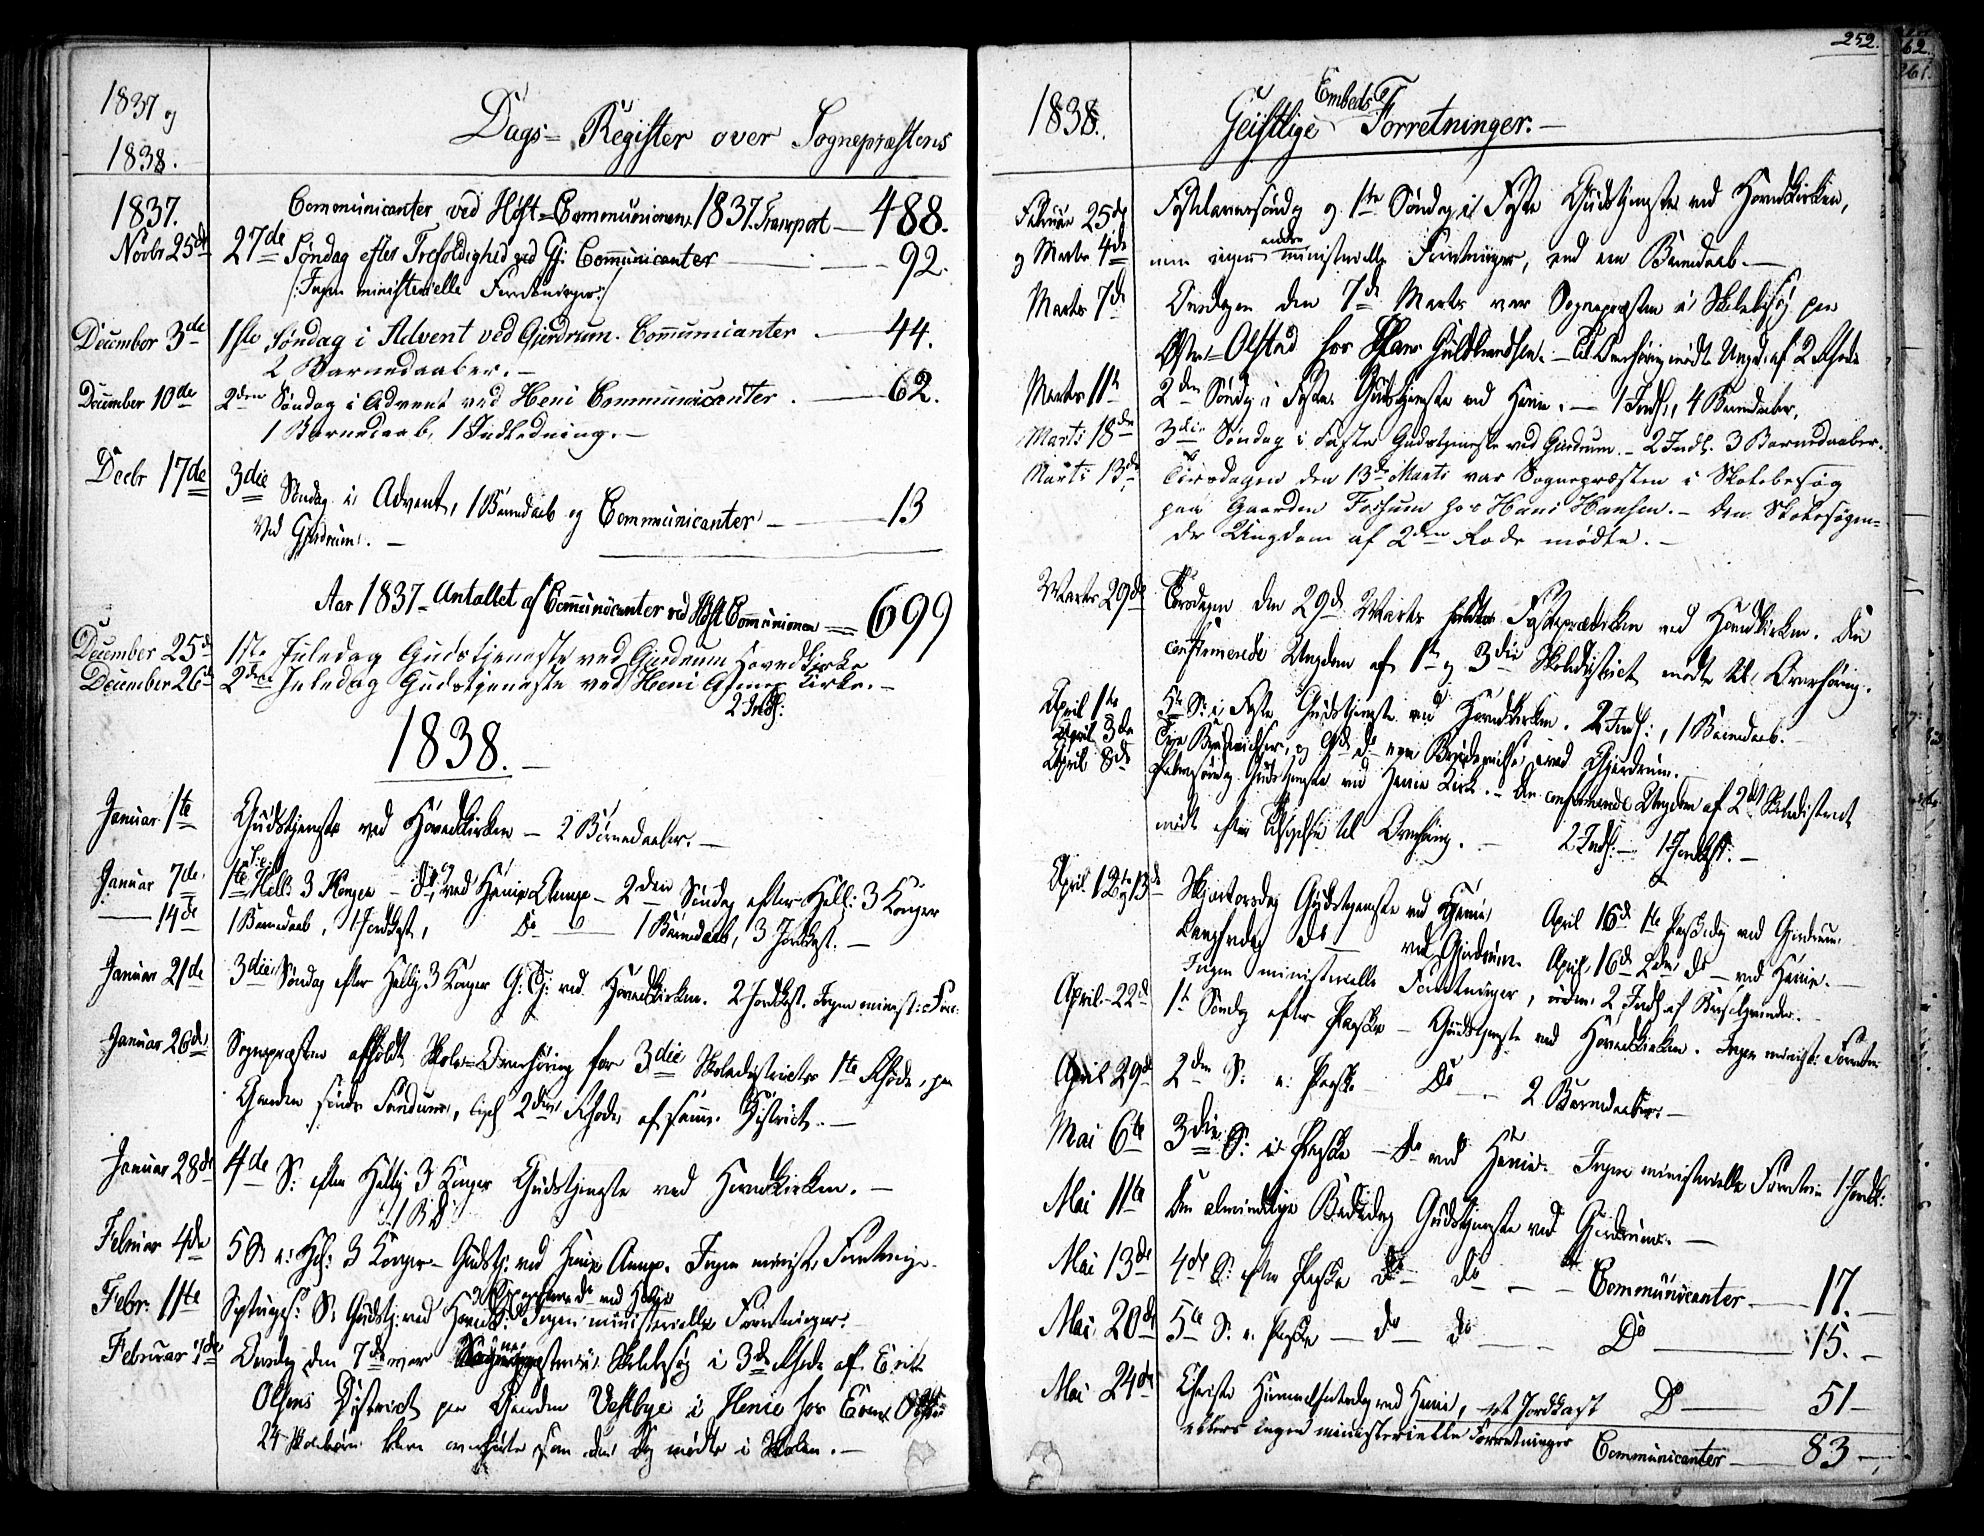 1837 og
1838.
Dags-Register over Sognepræstens
1837.
Communicanter ved Høst-Communionen 1837. Transport — 488.
Novbr 25de 27de Søndag efter Trefoldighed ved Gj: Communicanter — 92.
/: Ingen ministerielle Forretninger :/
December 3de 1ste Søndag i Advent ved Gjerdrum. Communicanter — 44.
2 Barnedaaber. —
December 10de 2den Søndag i Advent ved Heni Communicanter — 62.
1 Barnedaab, 1 Indledning. —
Decbr 17de 3die Søndag i Advent, 1 Barnedaab og Communicanter — 13
ved Gjerdrum. —
Aar 1837 — Antallet af Communicanter ved Høst Communionen — 699
December 25de 1ste Juledag Gudstjeneste ved Gjerdrum Hovedkirke
December 26de 2den Juledag Gudstjeneste ved Heni Annex Kirke. —
2 Indl:
1838. —
Januar 1te Gudstjeneste ved Hovedkirken — 2 Barnedaaber. —
Januar 7de 1te S. e. Hell. 3 Konger — do ved Henie Annex — 2den Søndag efter Hell: 3 Konger
— 14de 1 Barnedaab, 1 Jordkast, Do — 1 Barnedaab, 3 Jordkast. —
Januar 21de 3die Søndag efter Hellig 3 Konger G: Tj: ved Hovedkirken. 2 Jordkast. Ingen minist: For:
Januar 26de Sognepræsten afholdt Skole-Overhøring for 3die Skoledistricts 1te Rhode, paa
Gaarden søndre Fandum, 2den Rhode af samme District. —
Januar 28de 4de S: efter Hellig 3 Konger Gudstjeneste ved Hovedkirken. —
1 B D
Februar 4de 5 S. e: Hel: 3 Konger — Gudstj: ved Henie Annex. Ingen minist. Forretninger.
Febr: 11te Septuages: S: Gudstj: ved Hovedk: Ingen ministerielle Forretninger.
Februar 7de Onsdag den 7de var Sognepræsten i Skolebesøg i 3de Rhode af Erik
Olsens District paa Gaarden Vestbye i Henie hos Even
24 Skolebørn bleve overhørte som den Dag mødte i Skolen. —
252.
1838.
Geistlige Embeds Forretninger. —
Februar 25de Fastelavnssøndag og 1ste Søndag i Faste Gudstjeneste ved Hovedkirken,
og Marts 4de men ingen andre ministerielle Forretninger, end een Barnedaab. —
Marts 7de Onsdagen den 7de Marts var Sognepræsten i Skolebesøg paa
Øster-Olstad hos Hans Guldbrandsen. — Til Overhøring mødte Ungd. af 2 Rhode
Marts 11te 2den Søndag i Faste Gudstjeneste ved Henie. — 1 Indl:, 4 Barnedaaber.
Marti 18de 3die Søndag i Faste Gudstjeneste ved Gjerdrum. — 2 Indl. 3 Barnedaaber.
Marti 13de Tirsdagen den 13de Marti var Sognepræsten i Skolebesøg
paa Gaarden Fossum hos Hans Hansen. — Den Skolesøgen-
de Ungdom af 2den Rode mødte. —
Marts 29de Torsdagen den 29de Marts holdtes Fasteprædiken ved Hovedkirken. Den
confirmerede Ungdom af 1te og 3die Skoledistrict mødte til Overhøring.
April 1te 5te S: i Faste Gudstjeneste ved Hovedkirken. 2 Indl:, 1 Barnedaab. —
April 3de ved Gjerdrum. —
April 8de Palmesøndag Gudstjeneste ved Henie Kirke. — Den confirmerede Ungdom af 2det Skoledistrict
mødte efter til Overhøring. — 2 Indl: — 1 Jordkast. —
April 12te og 13de Skjærtorsdag Gudstjeneste ved Henie April 16de 1te Paaskedag ved Gjerdrum.
Langfredag do ved Gjerdrum. April 16de 2den do — ved Henie. —
Ingen ministerielle Forretninger, uden 2 Indl: af Barselqvinder. —
April 22de 1te Søndag efter Paaske — Gudstjeneste ved Hovedkirken. Ingen minist: Forretn:
April 29de 2den S: e: Paaske Do — 2 Barnedaaber. —
Mai 6te 3die S: e: Paaske — do ved Henie. Ingen ministerielle Forretn: 1 Jordk:
Mai 11te Den almindelige Bededag Gudstjeneste ved Gjerdrum. —
Mai 13de 4de S: efter Paaske do do — Communicanter — 17. —
Mai 20de 5te S: e: Paaske — do do — Do — 15. —
Mai 24de Christi Himmelfartsdag ved Henie, et Jordkast Do — 51 —
ellers ingen ministerielle Forretninger Communicanter — 83 —